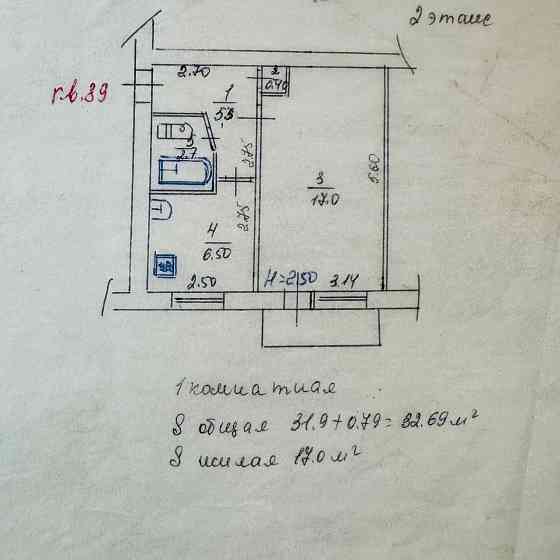 2 этаж
2.70
2
0.40
кв.39
1
5.3
5
2.7
2.75
3
17.0
5.60
2.75
4
6.50
2.50
H=2.50
3.14
1 комнатная
S общая 31.9+0.79=32.69 м²
S жилая 17.0 м²